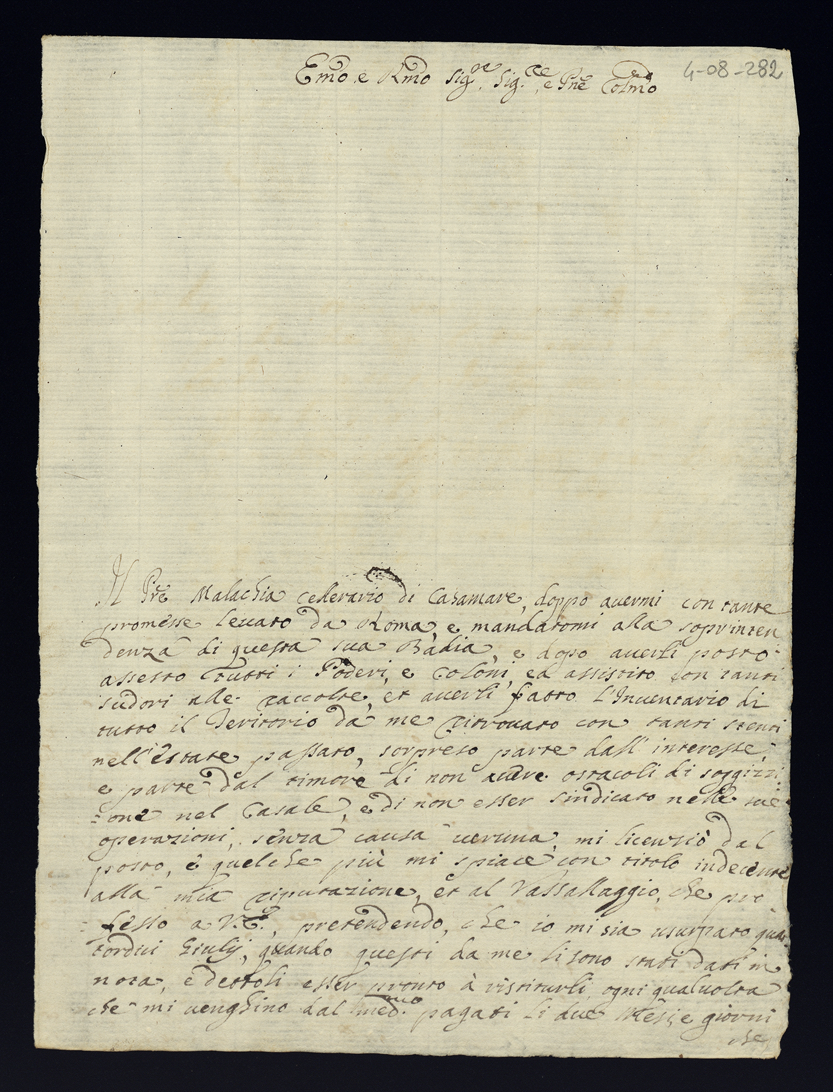 Emo, e Rmo Sig.re, Sig.re, e Pñe Colmo
4-08-282
Il Pre Malachia Cellerario di Casamare, doppo avermi con tante
promesse levato da Roma, e mandatomi alla soprinten
denza di questa sua Badia, e dopo averli posto
assesto tutti i Poderi, e Coloni, ed assistito con tanti
sudori alle raccolte, et averli fatto l'Inventario di
tutto il Teritorio da me ritrovato con tanti stenti
nell'Estate passato, sorpreso parte dall'interesse,
e parte dal timore di non avere ostacoli di soggizzi
one nel Casale, e di non esser sindicato nelle sue
operazioni, senza causa veruna, mi licenziò dal
posto, e quelche più mi spiace con titolo indecente
alla mia riputazione, et al Vassallaggio, che pro
fesso a V.E., pretendendo, che io mi sia usurpato quat
tordici Giulij, quando questi da me li sono stati dati in
nota, e dettoli esser pronto à ristituirli ogni qualvolta
che mi venghino dal med.mo pagati li due Mesi, e giorni
che